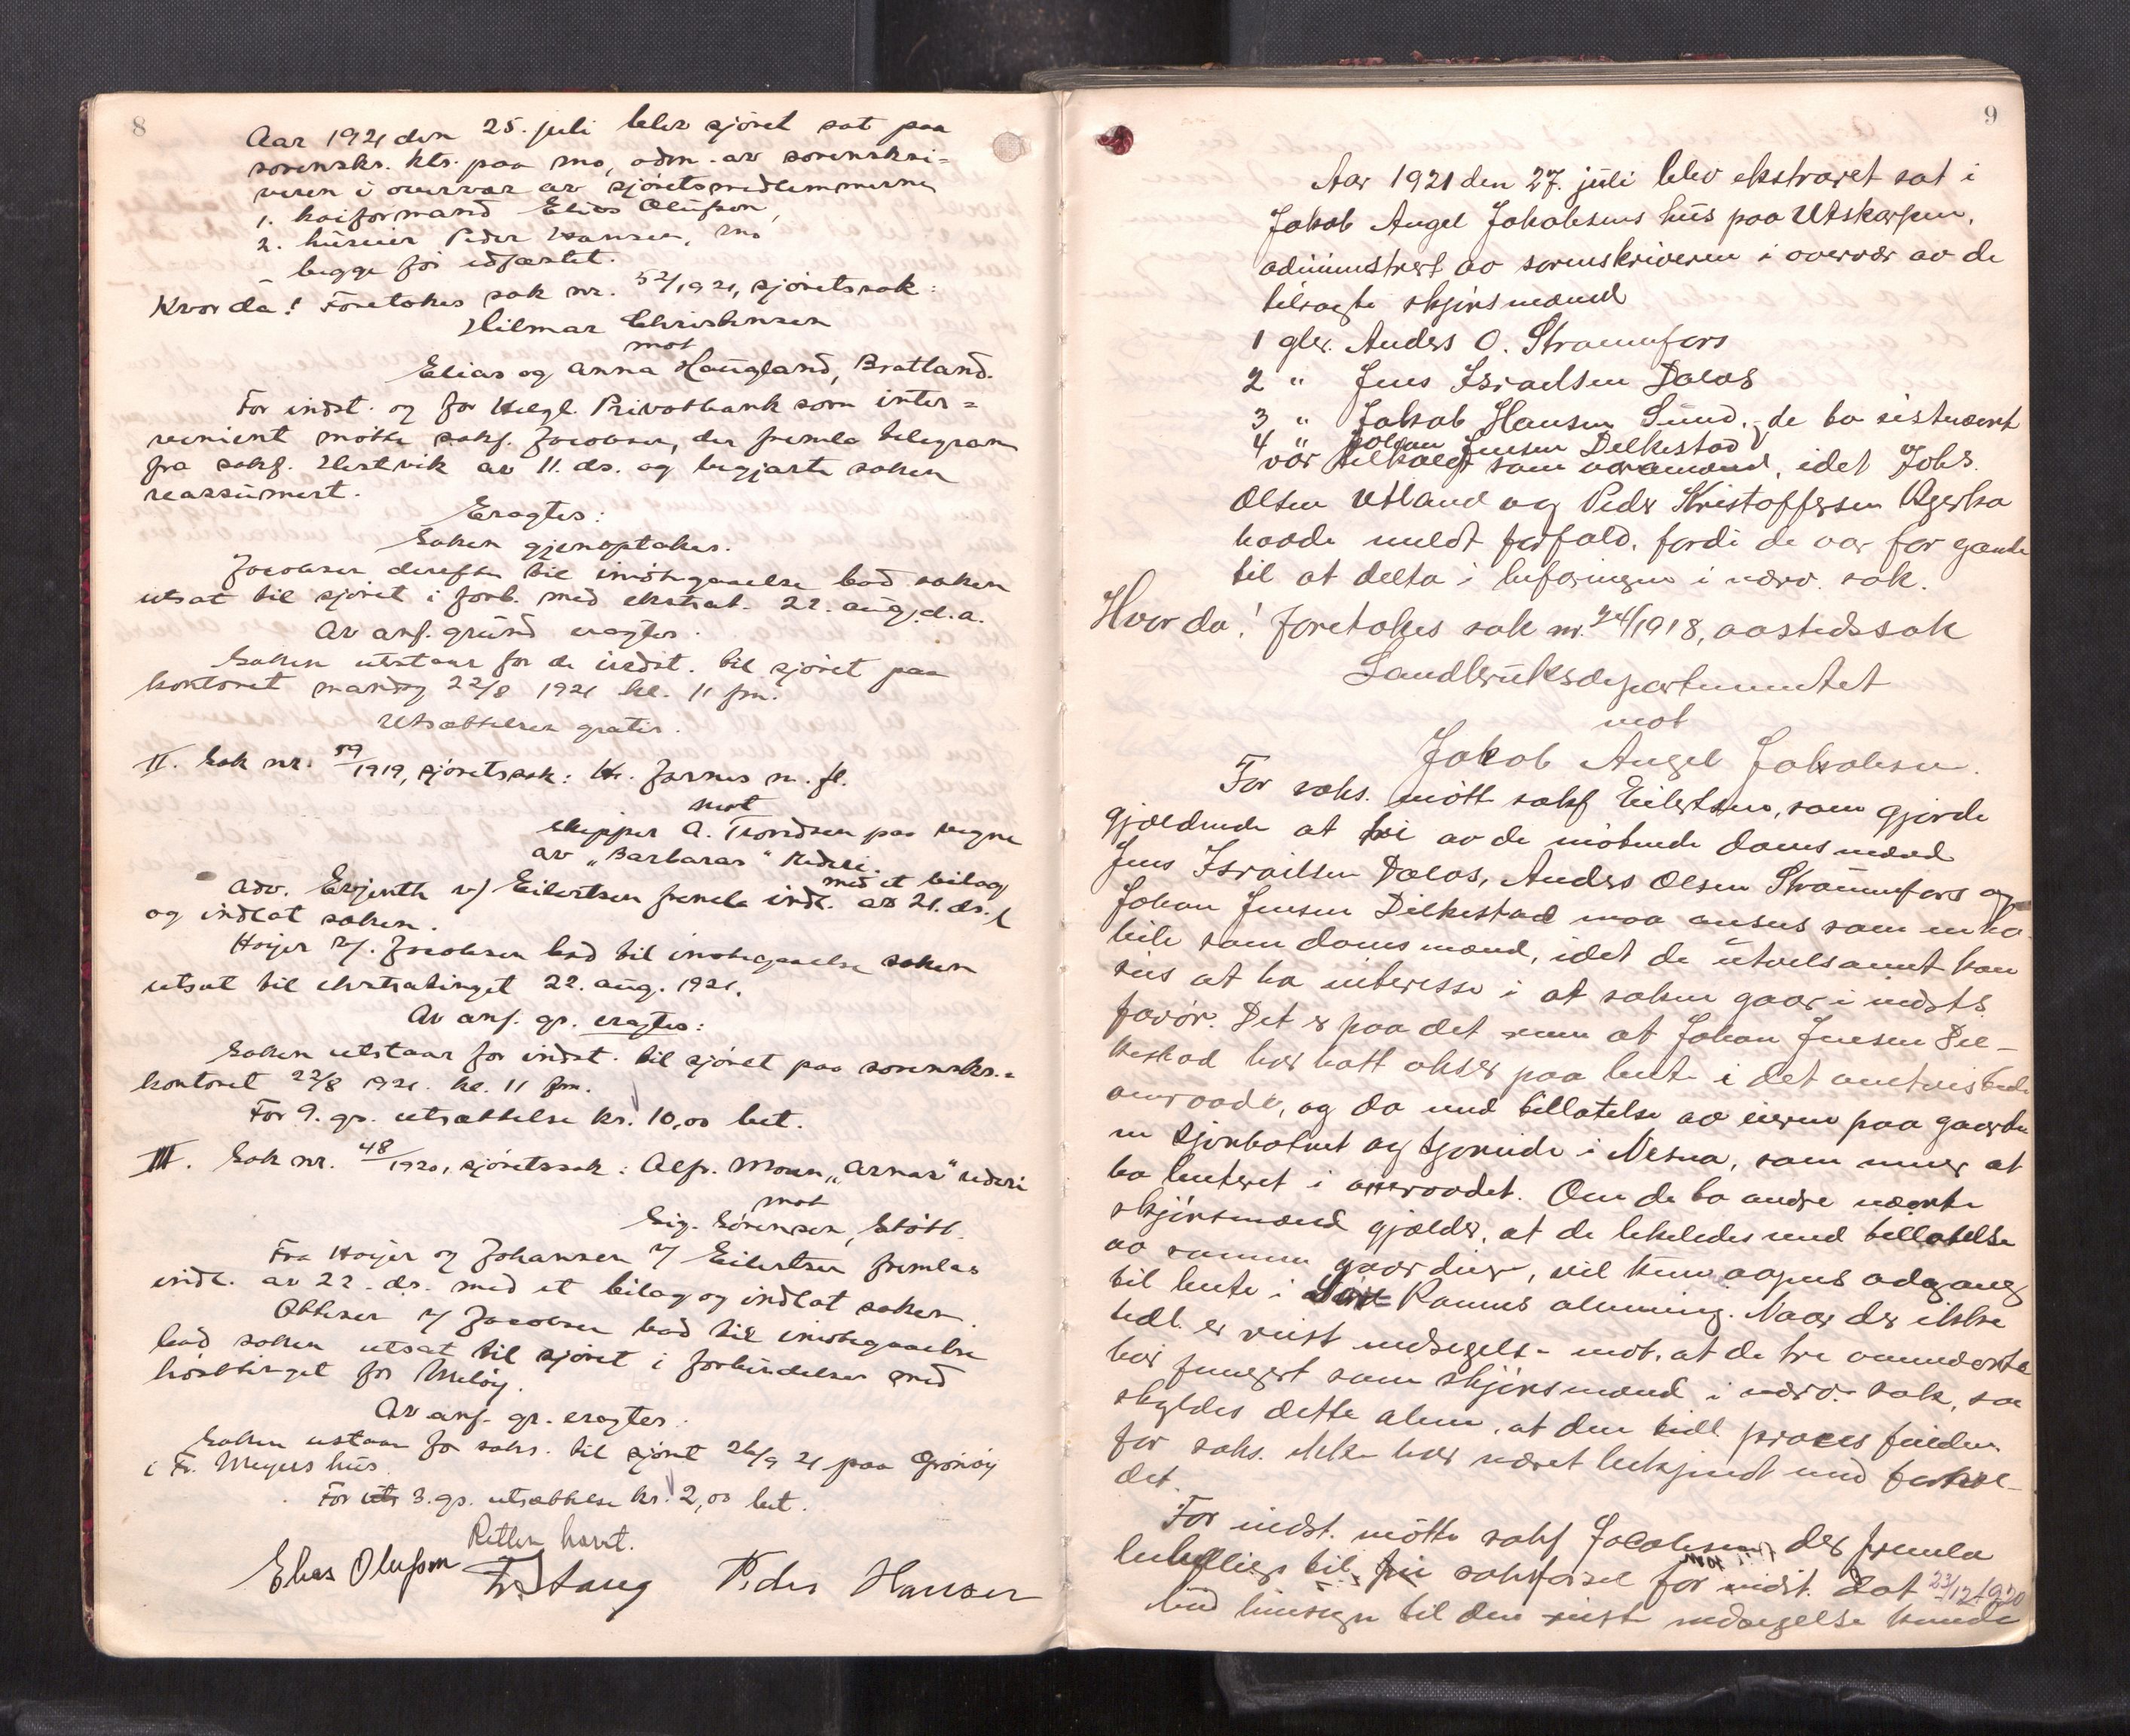 8
Aar 1921 den 25. juli blev sjöret sat paa
sorenskr. ktr. paa Mo, adm. av sorenskri-
veren i overvær av sjöretsmedlemmerne
1. kaiformand Elias Olufson,
2. huseier Peder Hansen, Mo
begge för edfæstet.
Hvor da! Foretokes sak nr. 52/1921, sjöretssak:
Hilmar Christensen
mot
Elias og Anna Haugland, Bratland.
For indst. og for Helgl. Privatbank som inter-
venient mötte sakf. Jacobsen, der fremla telegram
fra sakf. Hestvik av 11. ds. og begjærte saken
reassumert.
Eragtes:
Saken gjenoptakes.
Jacobsen derefter til imötegaaelse bad saken
utsat til sjöret i forb. med ekstrat. 22. aug. d.a.
Av anf. grund eragtes:
Saken utstaar for de indst. til sjöret paa
kontoret mandag 22/8 1921 kl. 11 fm.
Utsættelsen gratis.
II. Sak nr. 59/1919, sjöretssak: Kr. Jarnes m. fl.
mot
skipper A. Trondsen paa vegne
av "Barbaras" Rederi.
Adv. Erjenth v/ Eilertsen fremla indl. av 21. ds. med et bilag
og indlot saken.
Høyer v/. Jacobsen bad til imötegaaelse saken
utsat til ekstratinget 22. aug. 1921.
Av anf. gr. eragtes:
Saken utstaar for indst. til sjöret paa sorenskr.-
kontoret 22/8 1921. kl. 11 fm.
For 9. gs. utsættelse kr. 10,00 bet.
III. Sak nr. 48/1920, sjöretssak: Alf. Moen "Arnas" rederi
mot
Sig. Sörensen, Stött.
Fra Høyer og Johansen v/ Eilertsen fremlas
indl. av 22. ds. med et bilag og indlot saken.
Ottesen v/ Jacobsen bad til imötegaaelse
bad saken utsat til sjöret i forbindelse med
hösttinget for Melöy.
Av anf. gr. eragtes:
Saken utstaar for saks. til sjöret 26/9 21 paa Grönöy
i Fr. Meyers hus.
For uts 3. gs. utsættelse kr. 2,00 bet.
Retten hævet.
Elias Olufson Stang Peder Hansen
9
Aar 1921 den 27. juli blev ekstraret sat i
Jakob Angel Jakobsens hus paa Utskarpen,
administrert av sorenskriveren i overvær av de
tilsagte skjönsmænd
1 gbr. Anders O. Straumfors
2 " Jens Israelsen Dalos
3 " Jakob Hansen Sund, de to sistnævnt
4 " Johan Jensen Dilkestad
var tilkaldt som varamænd, idet Johs.
Olsen Utland og Peder Kristoffersen Ytgerba
havde meldt forfald, fordi de var for gamle
til at delta i befaringen i nærv. sak.
Hvor da! foretokes sak nr. 24/1918, aastedssak
Landbruksdepartementet
mot
Jakob Angel Jakobsen.
For saks. mött sakf Eilertsen, som gjorde
gjældende at tri av de mötende domsmænd
Jens Israilsen Dalos, Anders Olsen Straumfors og
Johan Jensen Dilkestad maa ansees som inha-
bile som domsmænd, idet de utvilsomt kan
siis at ha interesse i at saken gaar i indsts.
favör. Det er paa det rene at Johan Jensen Dil-
kestad har hatt okser paa beite i det omtvistede
omraade, og da med tillatelse av eieren paa gaarde-
ne Sjonbotnet og Sjoneide i Nesna, som mener at
ha beiteret i omraadet. Om de to andre nævnte
skjönsmænd gjælder, at de likeledes med tillatelse
av samme gaardeier, vil kunne aapnes adgang
til beite i Rannes almning. Naar der ikke
tidl. er reist indsigelse mot, at de tre omnævnte
har fungert som skjönsmænd i nærv. sak, saa
skyldes dette alene, at den tidl procesfuldm.
for saks. ikke har været bekjendt med forhol-
det.
For indst. mötte sakf Jacobsen, der fremla
beskikkelse til fri sakförsel for indst. dat 23/12 1920
Med hensyn til den reiste indsigelse kunde